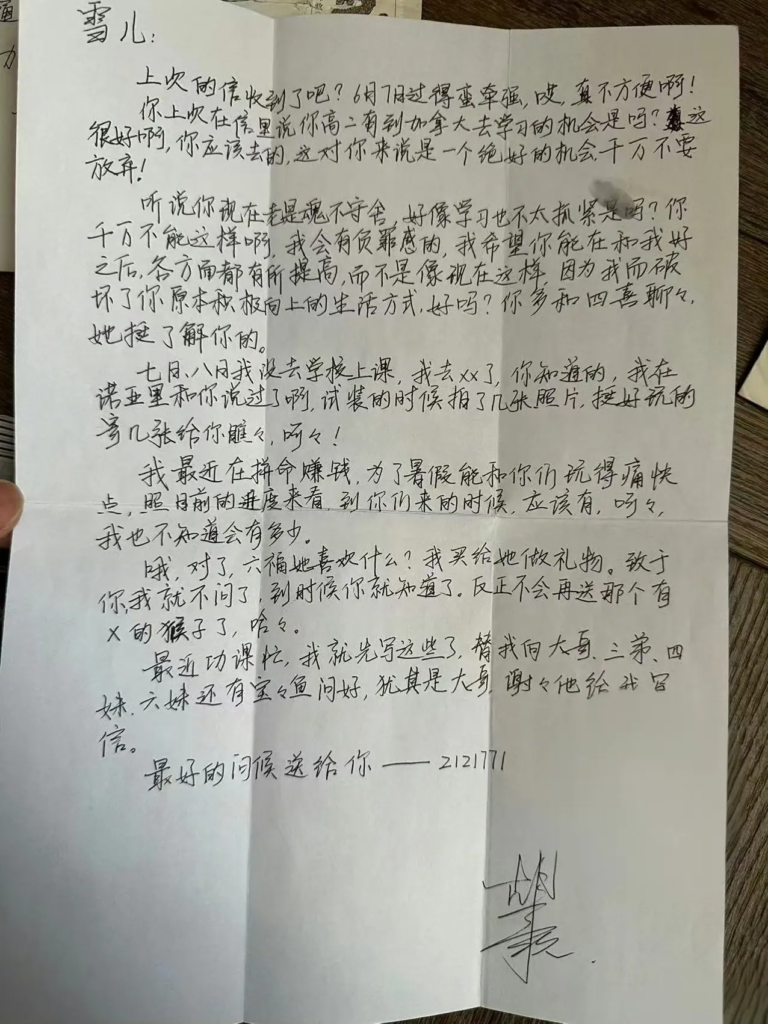 雪儿：
上次的信收到了吧？6月7日过得蛮牵强，哎，真不方便啊！
你上次在信里说你高二有到加拿大去学习的机会是吗？这
很好啊，你应该去的，这对你来说是一个绝好的机会，千万不要
放弃！
听说你现在老是魂不守舍，好像学习也不太抓紧是吗？你
千万不能这样啊，我会有负罪感的，我希望你能在和我好
之后，各方面都有所提高，而不是像现在这样，因为我而破
坏了你原本积极向上的生活方式，好吗？你多和四喜聊々，
她挺了解你的。
七日、八日我没去学校上课，我去xx了，你知道的，我在
诺亚里和你说过了啊，试装的时候拍了几张照片，挺好玩的
寄几张给你瞧々，呵々！
我最近在拼命赚钱，为了暑假能和你们玩得痛快
点，照目前的进度来看，到你们来的时候，应该有，呵々，
我也不知道会有多少。
哦，对了，六福她喜欢什么？我买给她做礼物。致于
你，我就不问了，到时候你就知道了。反正不会再送那个有
x的猴子了，哈々。
最近功课忙，我就先写这些了，替我向大哥、三弟、四
妹、六妹还有宝々鱼问好，犹其是大哥，谢々他给我写
信。
最好的问候送给你——2121771
胡